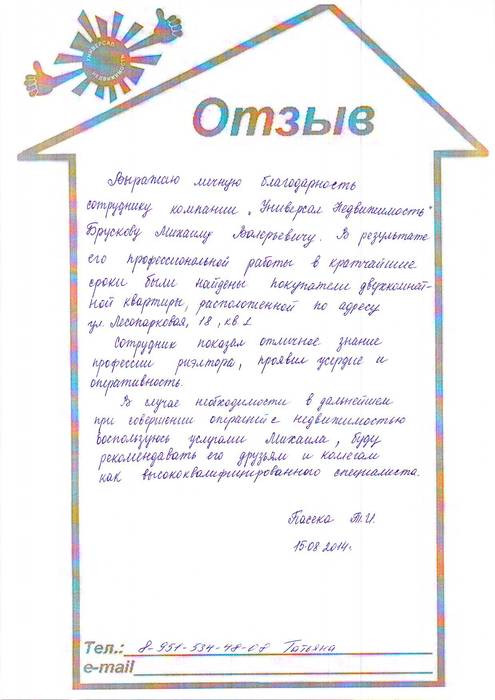 УНИВЕРСАЛ
НЕДВИЖИМОСТЬ
Отзыв
Выражаю личную благодарность
сотруднику компании „Универсал Недвижимость"
Брускову Михаилу Валерьевичу. В результате
его профессиональной работы в кратчайшие
сроки были найдены покупатели двухкомнат-
ной квартиры, расположенной по адресу
ул. Лесопарковая, 18, кв 1
Сотрудник показал отличное знание
профессии риэлтора, проявил усердие и
оперативность.
В случае необходимости в дальнейшем
при совершении операций с недвижимостью
воспользуюсь услугами Михаила, буду
рекомендовать его друзьям и коллегам
как высококвалифицированного специалиста.
Пасека Т.И.
15.08.2014г.
Тел.: 8-951-534-48-07 Татьяна
e-mail